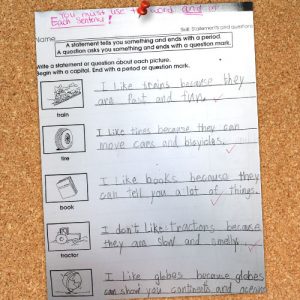 You must use the word and or
Each Sentence!
Name
Skill: Statements and questions
A statement tells you something and ends with a period.
A question asks you something and ends with a question mark.
Write a statement or question about each picture.
Begin with a capital. End with a period or question mark.
I like trains because they
are fast and fun.
train
I like tires because they can
move cars and bicycles.
tire
I like books because they
can tell you a lot of things.
book
I don't like tractors because
they are slow and smelly.
tractor
I like globes because globes
can show you continents and oceans